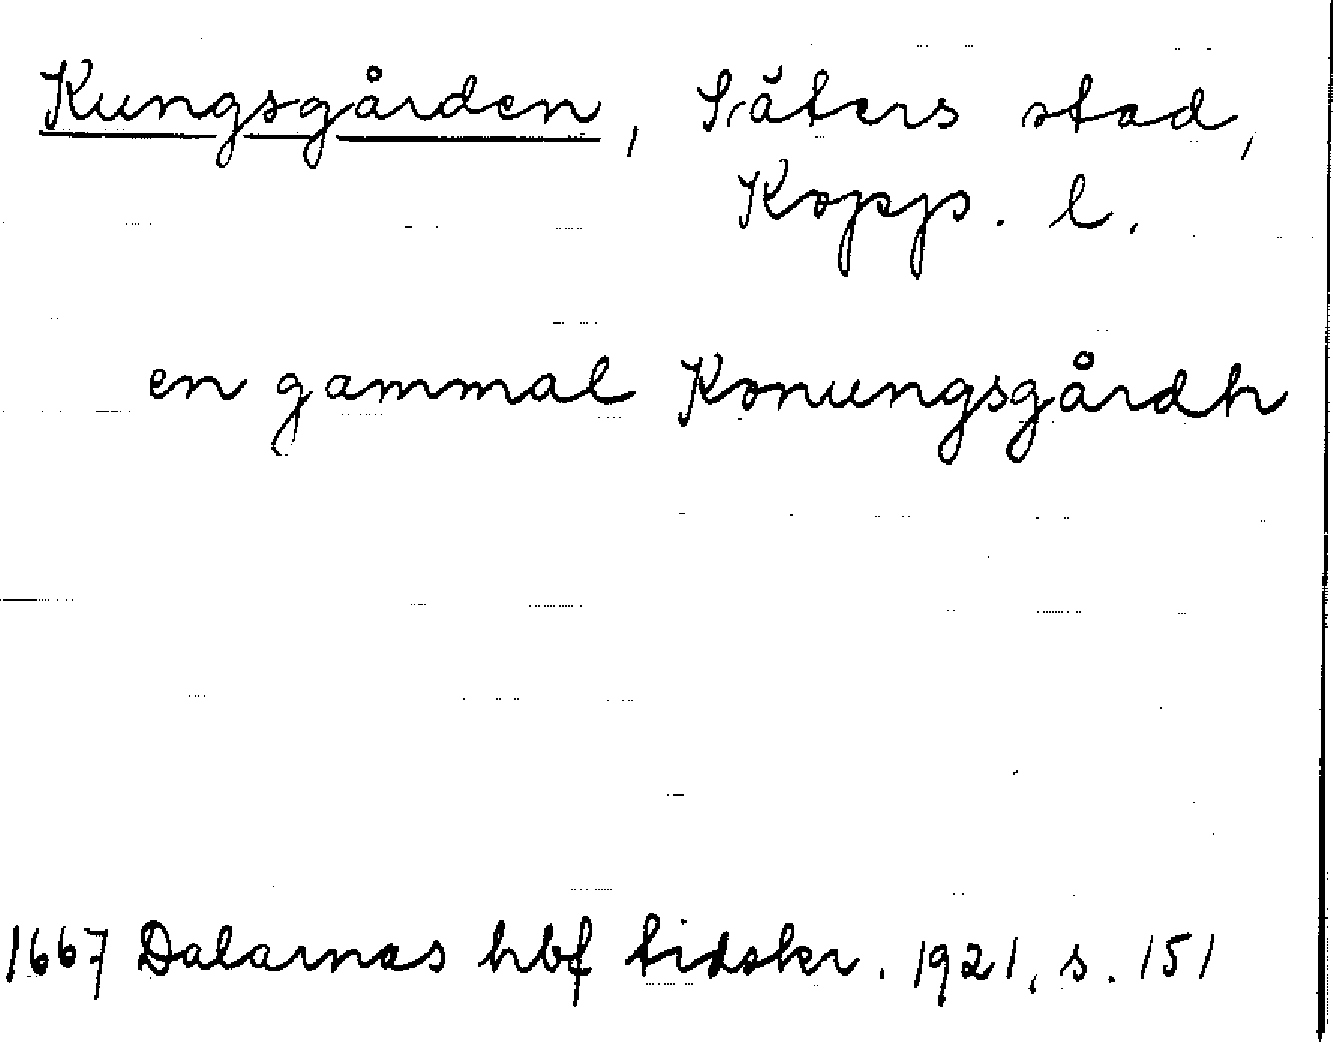 Kungsgården, Säters stad,
Kopp. l.
en gammal Konungsgårdh
1667 Dalarnas hbf tidskr. 1921, s. 151